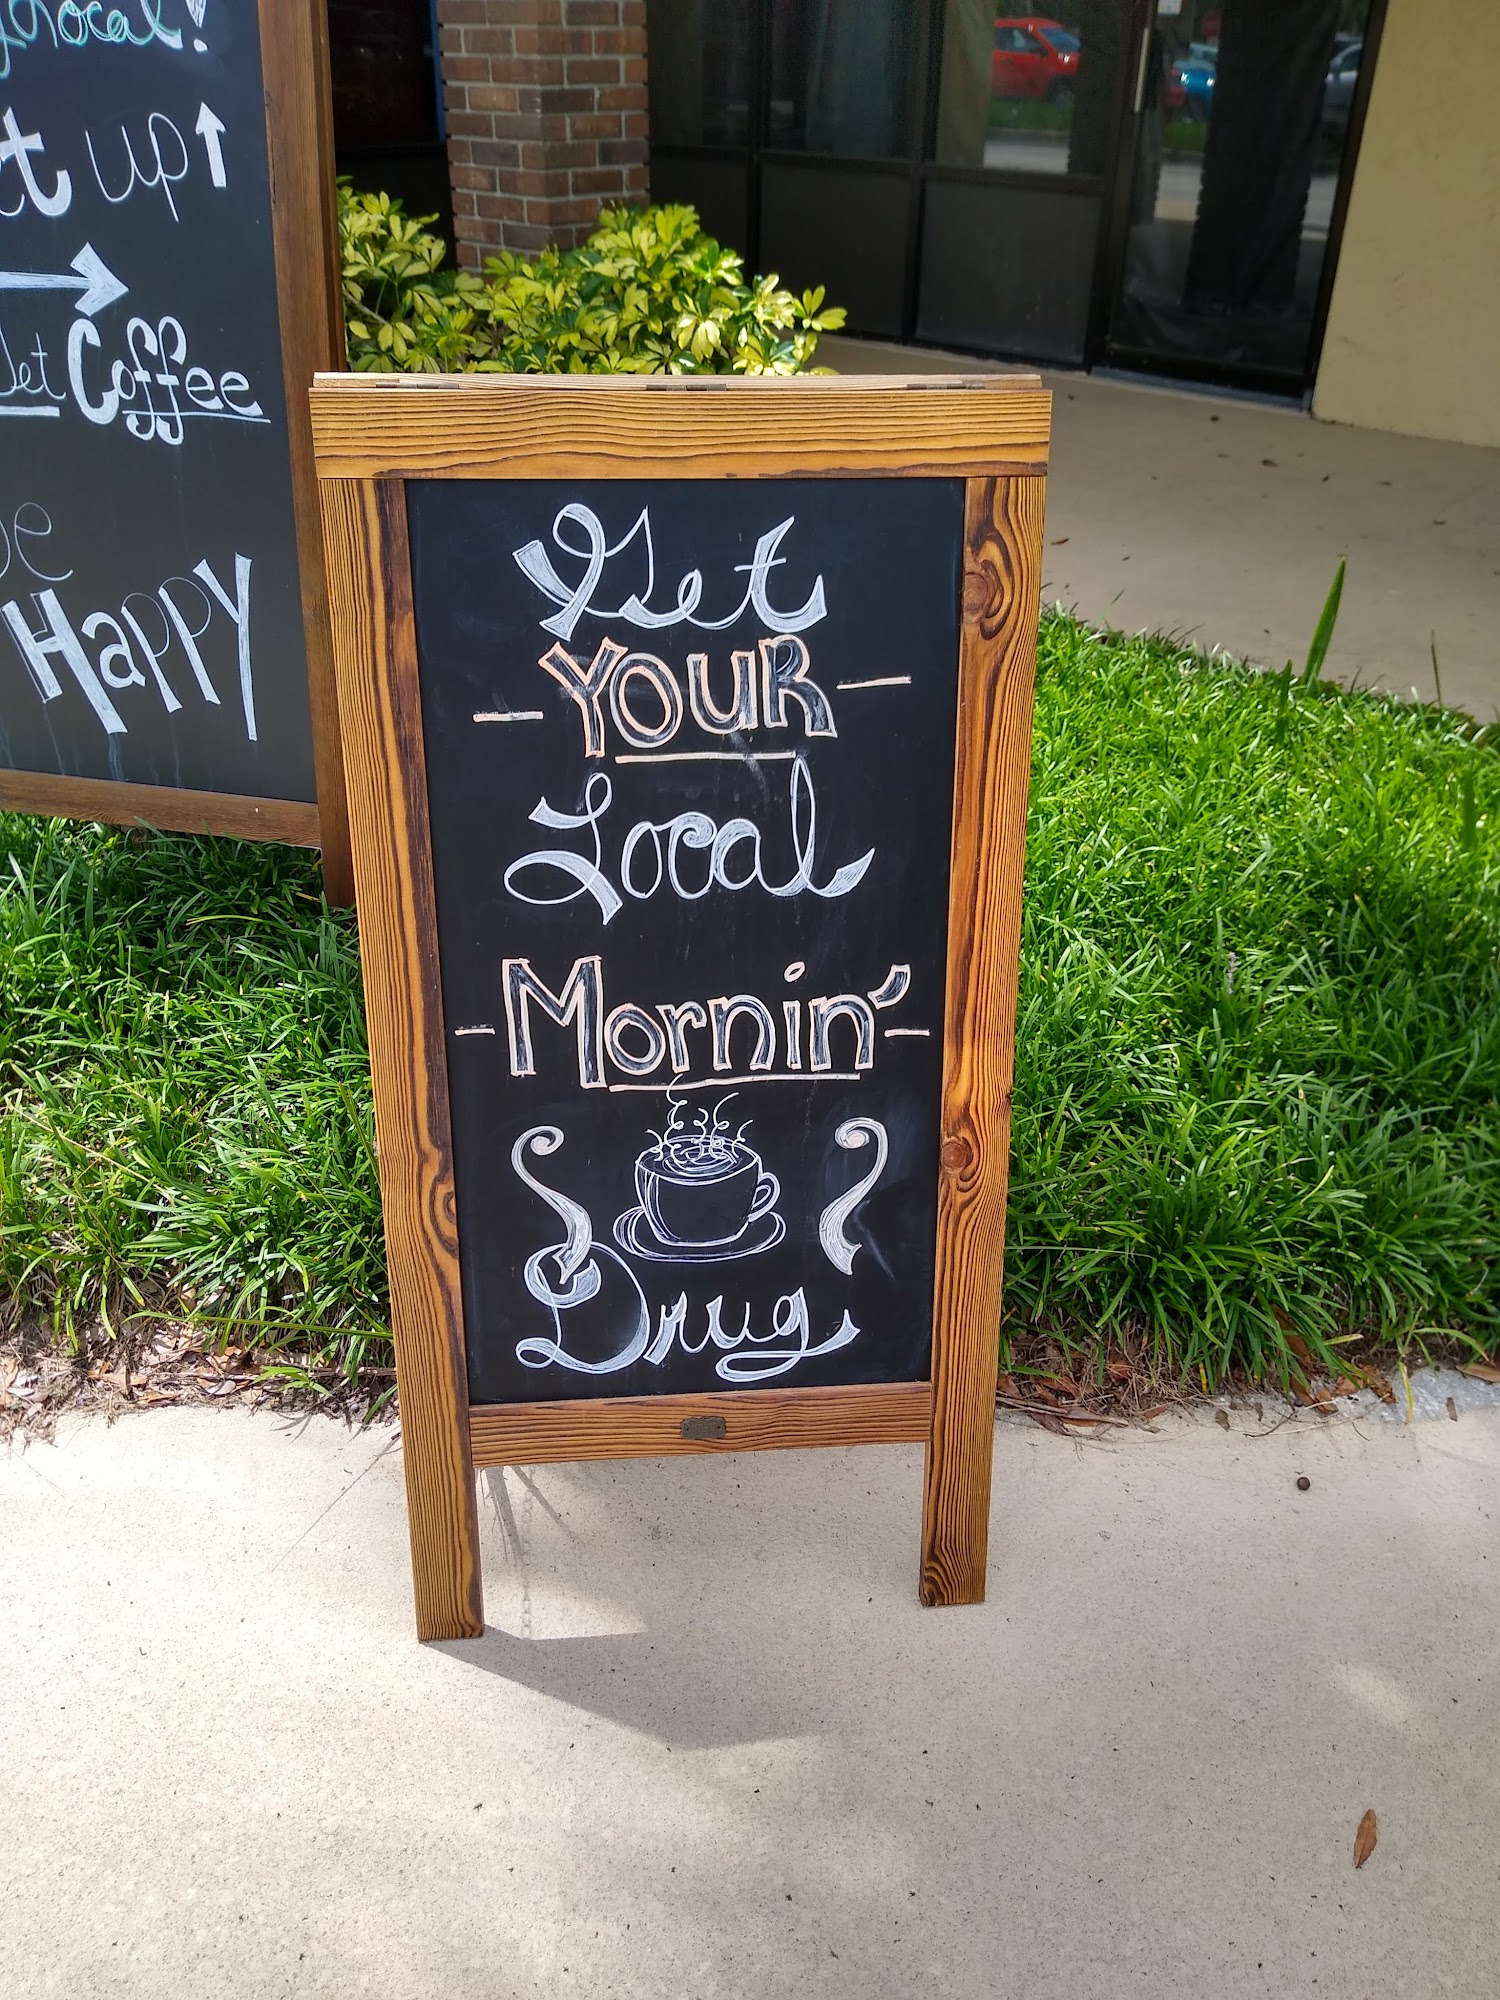 Local!
up
Coffee
Happy
Get
YOUR
Local
Mornin'
Drug